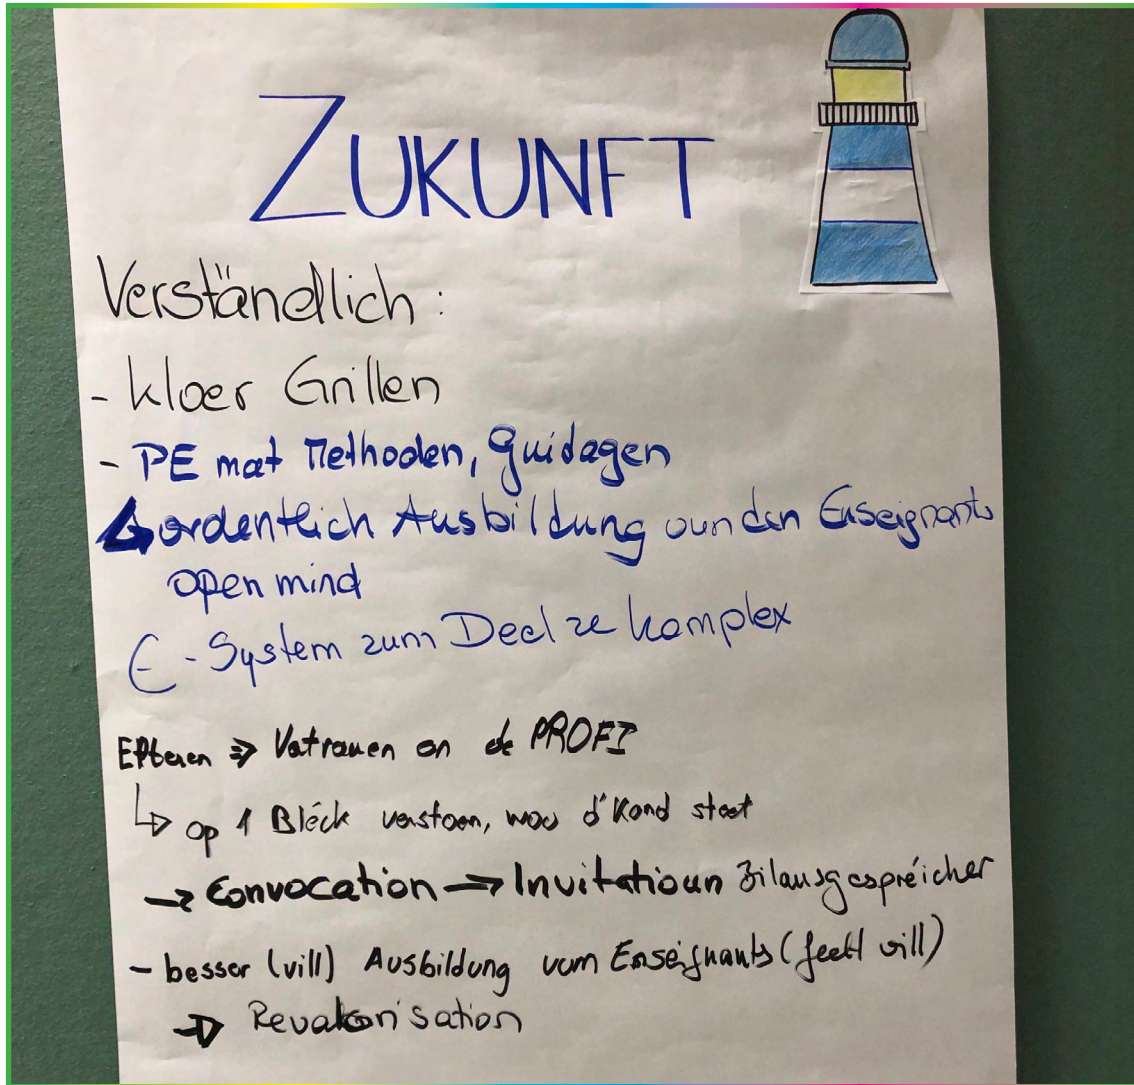 ZUKUNFT
Verständlich :
- kloer Grillen
- PE mat Methoden, Guidagen
ordentlich Ausbildung vun den Enseignants
open mind
E - System zum Deel ze komplex
Elteren ⇒ Vertrauen an de PROFI
↳ op 1 Bléck verstoen, wou d'Kand steet
→ Convocation → Invitatioun Bilansgespréicher
- besser (vill) Ausbildung vum Enseignants (feelt vill)
→ Revalorisation